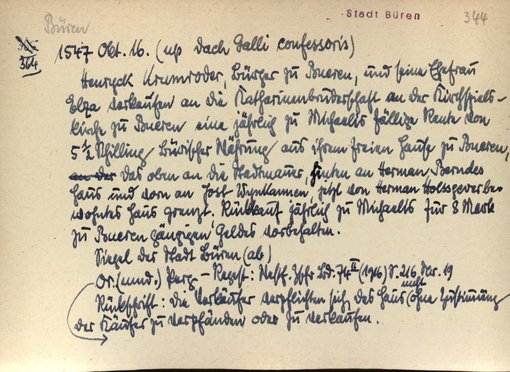 Büren
-Stadt Büren
344
364
1547 Okt. 16. (up dach Galli confessoris)
Henryck Krumroder, Bürger zu Bueren, und seine Ehefrau
Elza verkaufen an die Katharinenbruderschaft an der Kirchspiels-
kirche zu Bueren eine jährlich zu Michaelis fällige Rente von
5 1/2 Schilling Bürischer Währung aus ihrem freien Hause zu Bueren,
an der das oben an die Stadtmauer, hinten an Herman Berndes
Haus und vorn an Jost Wynkannen, jetzt von Herman be-
wohntes Haus grenzt. Rückkauf jährlich zu Michaelis für 8 Mark
zu Bueren gängigen Geldes vorbehalten.
Siegel der Stadt Büren (ab)
Or. (mnd.) Perg. - Regest: Westf. Ztschr. Bd. 74 II (1916) S. 216, Nr. 19
Rückschrift: die Verkäufer verpflichten sich, das Haus nicht ohne Zustimmung
der Käufer zu verpfänden oder zu verkaufen.